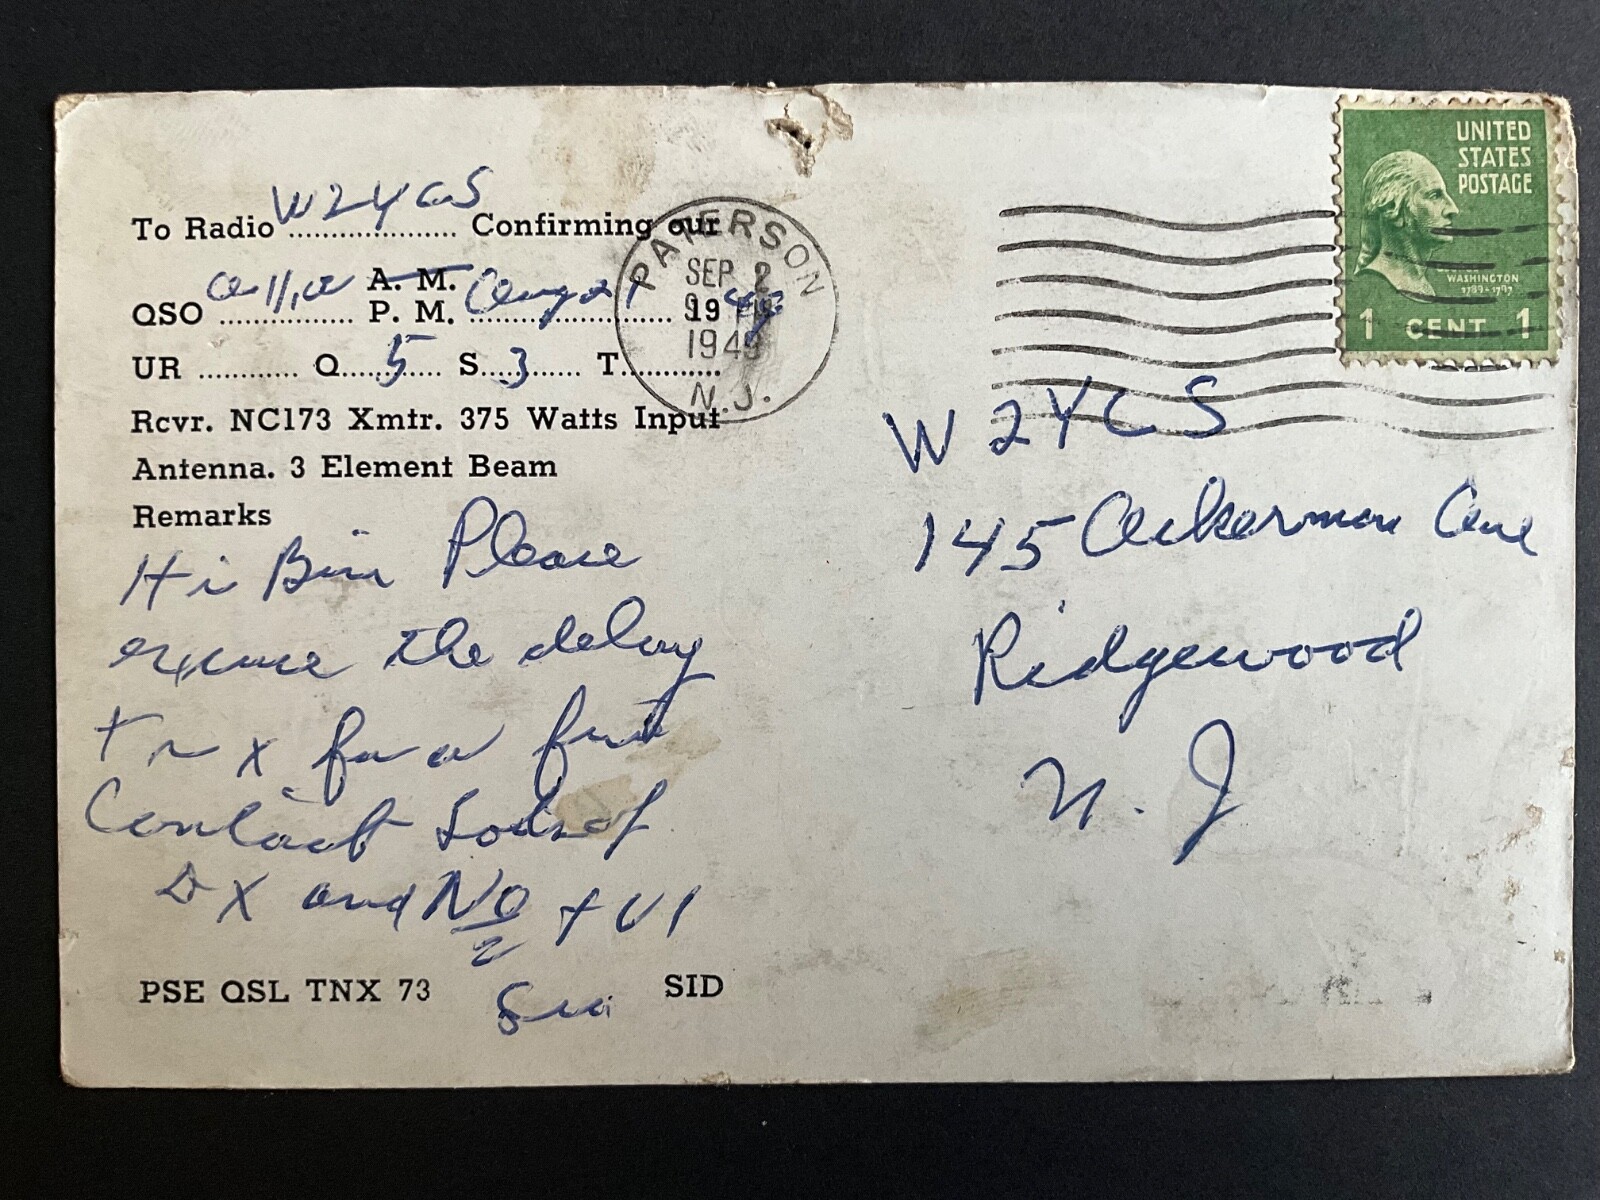 To Radio W2YCS Confirming our
A. M.
QSO P. M. 19 49
UR Q 5 S 3 T
Rcvr. NC173 Xmtr. 375 Watts Input
Antenna. 3 Element Beam
Remarks
Hi Please
excuse the delay
Tnx for a first
Contact
DX and
PSE QSL TNX 73 SID
PATERSON
SEP 2
1949
N.J.
UNITED
STATES
POSTAGE
WASHINGTON
1789-1797
1 CENT 1
W2YCS
145 Ackerman Ave
Ridgewood
N. J